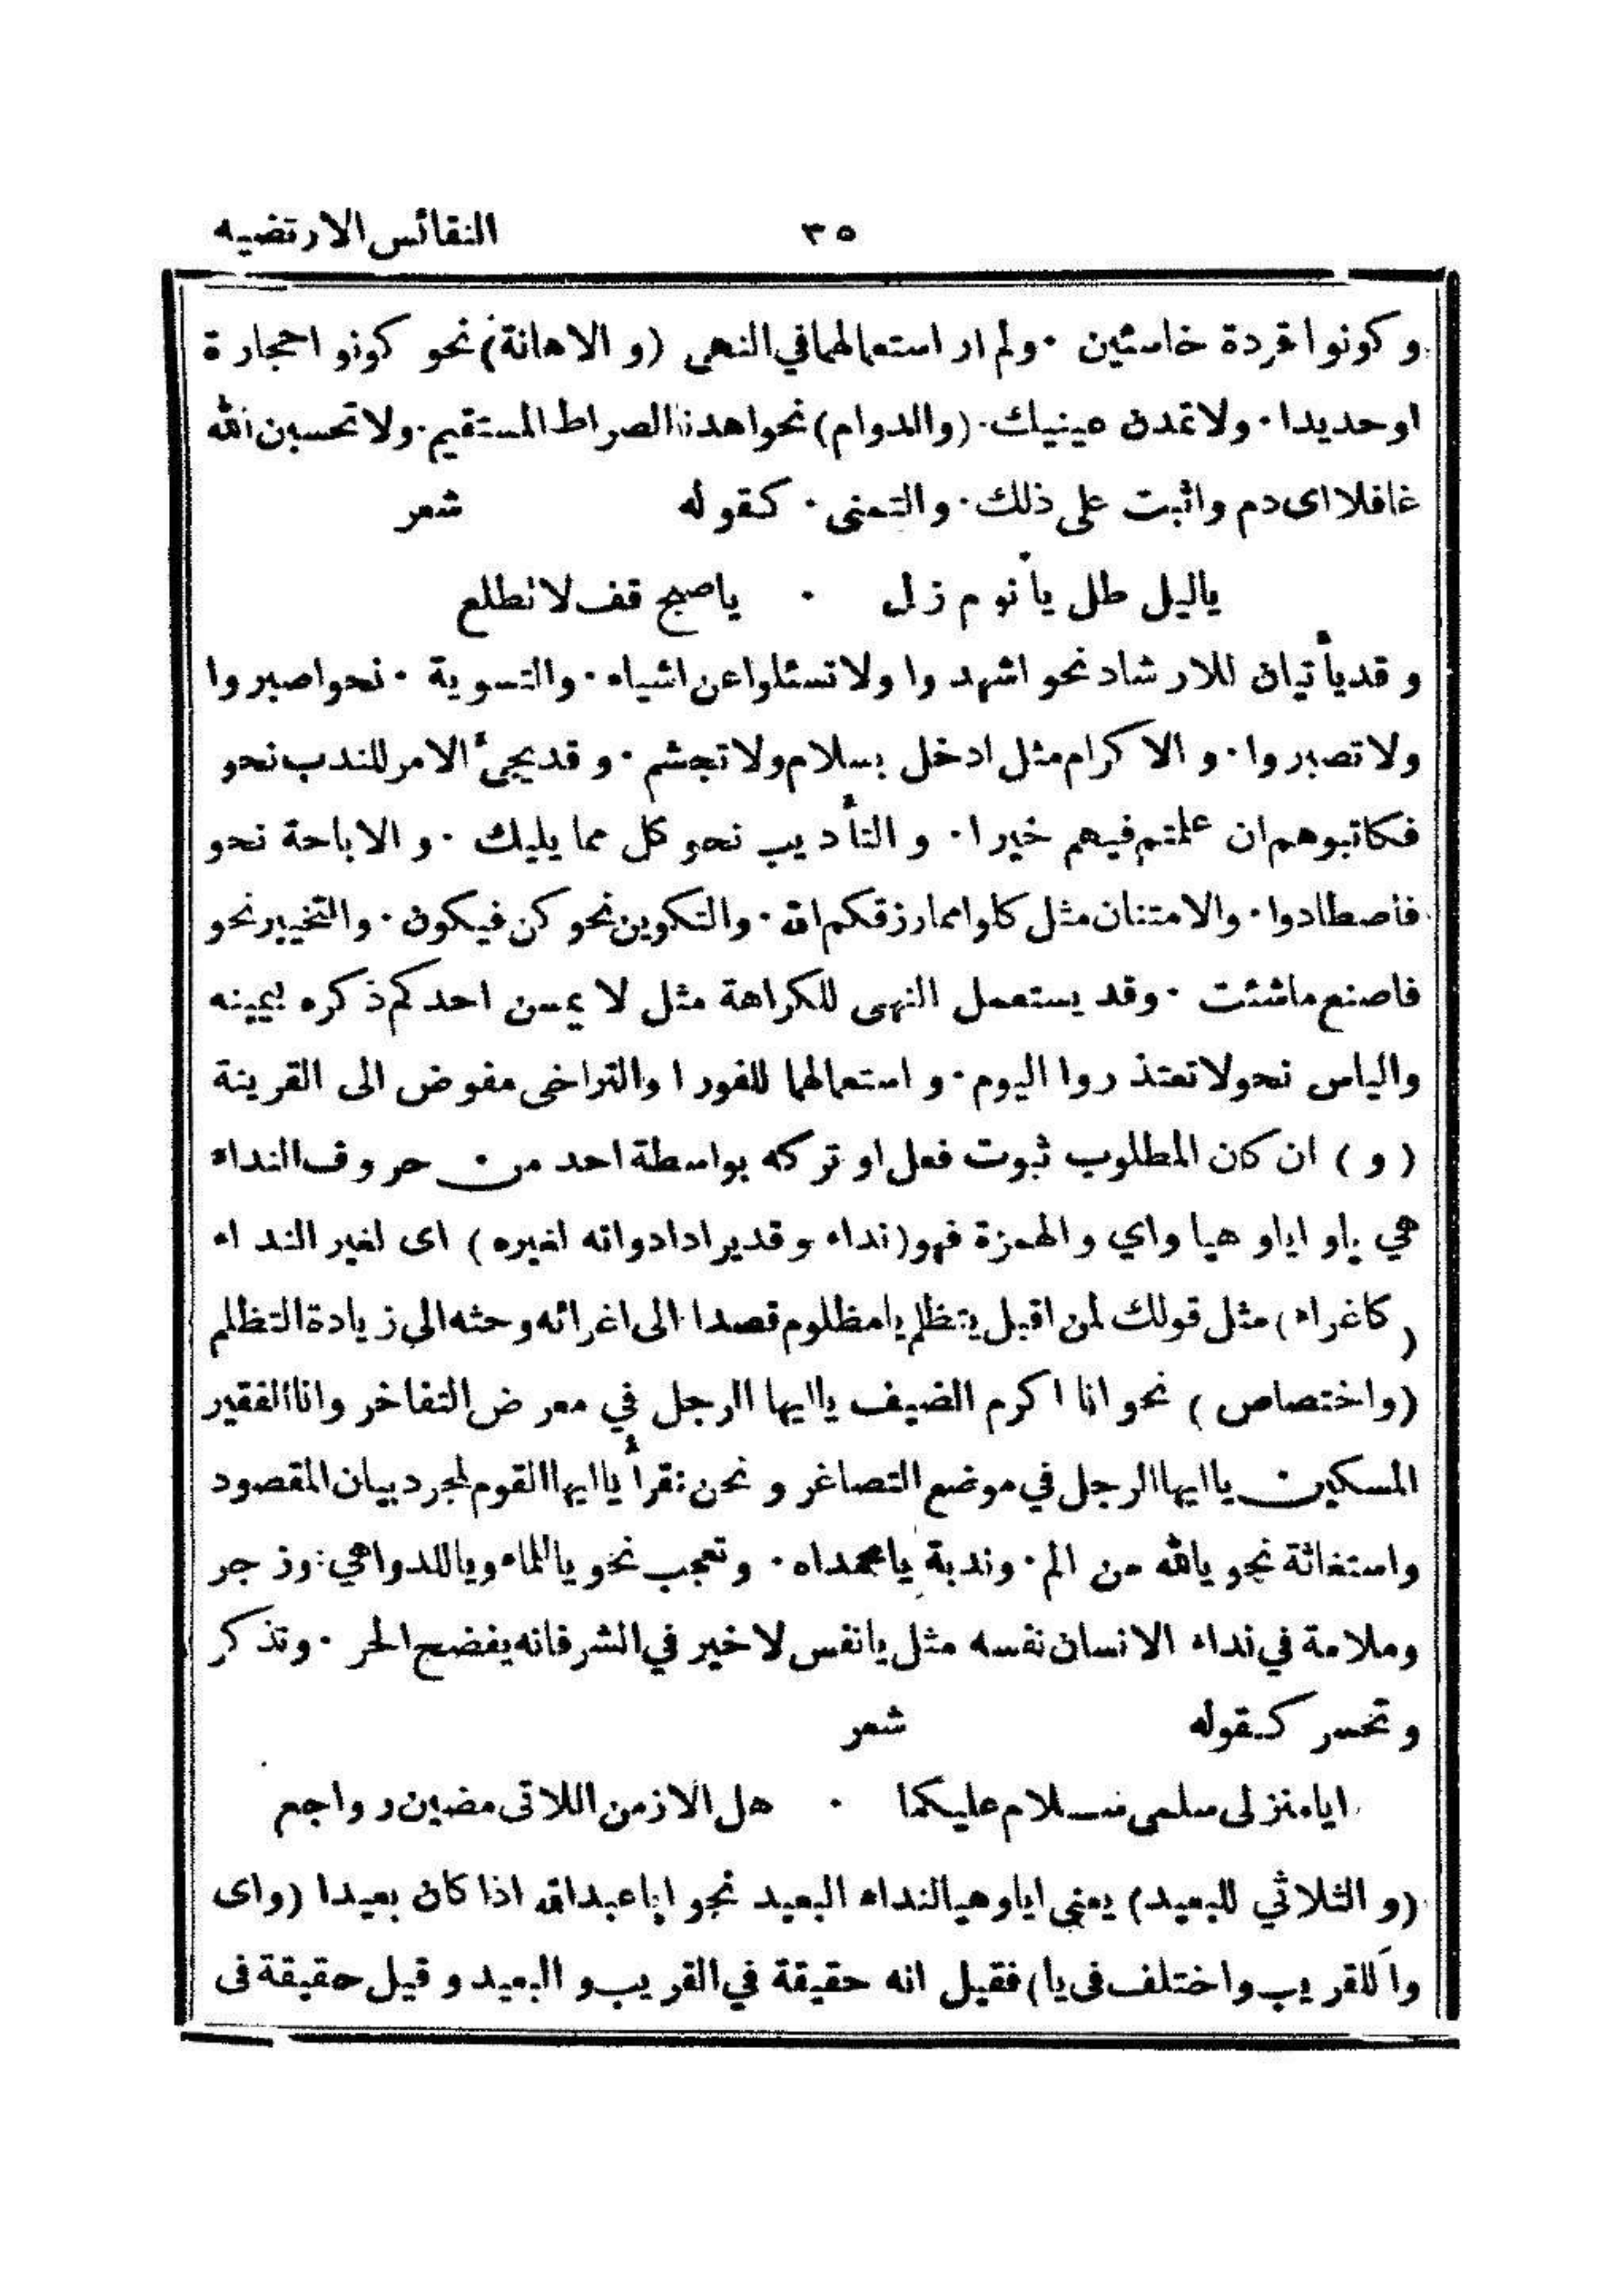 النقائس الارتضيه
٣٥
وكونوا قردة خاسئين ٠ ولم ار استعمالهما في النهى (والاهانة) نحو كونو احجارة
اوحديدا ٠ ولا تمدن عينيك ٠ (والدوام) نحو اهدنا الصراط المستقيم ٠ ولا تحسبن الله
غافلا اى دم واثبت على ذلك ٠ والتمنى ٠ كقوله شعر
ياليل طل يا نوم زل ٠ ياصبح قف لا تطلع
وقد يأتيان للارشاد نحو اشهدوا ولا تسئلوا عن اشياء ٠ والتسوية ٠ نحو اصبروا
ولا تصبروا ٠ والاكرام مثل ادخل بسلام ولا تجشم ٠ وقد يجيء الامر للندب نحو
فكاتبوهم ان علمتم فيهم خيرا ٠ والتأديب نحو كل مما يليك ٠ والاباحة نحو
فاصطادوا ٠ والامتنان مثل كلوا مما رزقكم الله ٠ والتكوين نحو كن فيكون ٠ والتخيير نحو
فاصنع ماشئت ٠ وقد يستعمل النهى للكراهة مثل لا يمسن احدكم ذكره بيمينه
والياس نحو لا تعتذروا اليوم ٠ واستعمالهما للفور او التراخى مفوض الى القرينة
(و) ان كان المطلوب ثبوت فعل او تركه بواسطة احد من حروف النداء
هي ياو اياو هيا واي والهمزة فهو (نداء وقد يراد ادواته لغيره) اى لغير النداء
(كاغراء) مثل قولك لمن اقبل يتظلم يا مظلوم قصدا الى اغرائه وحثه الى زيادة التظلم
(واختصاص) نحو انا اكرم الضيف ياايها الرجل في معرض التفاخر وانا الفقير
المسكين ياايها الرجل في موضع التصاغر ونحن نقرأ ياايها القوم لمجرد بيان المقصود
واستغاثة نحو يالله من الم ٠ وندبة يا محمداه ٠ وتعجب نحو يا للماء ويا للدواهي ٠ وزجر
وملامة في نداء الانسان نفسه مثل يا نفس لا خير في الشر فانه يفضح الحر ٠ وتذكر
وتحسر كقوله شعر
ايا منزلى سلمى سلام عليكما ٠ هل الازمن اللاتى مضين رواجع
(والثلاثي للبعيد) يعنى اياو هيا لنداء البعيد نحو ايا عبدالله اذا كان بعيدا (واى
وأ للقريب واختلف فى يا) فقيل انه حقيقة في القريب و البعيد و قيل حقيقة فى